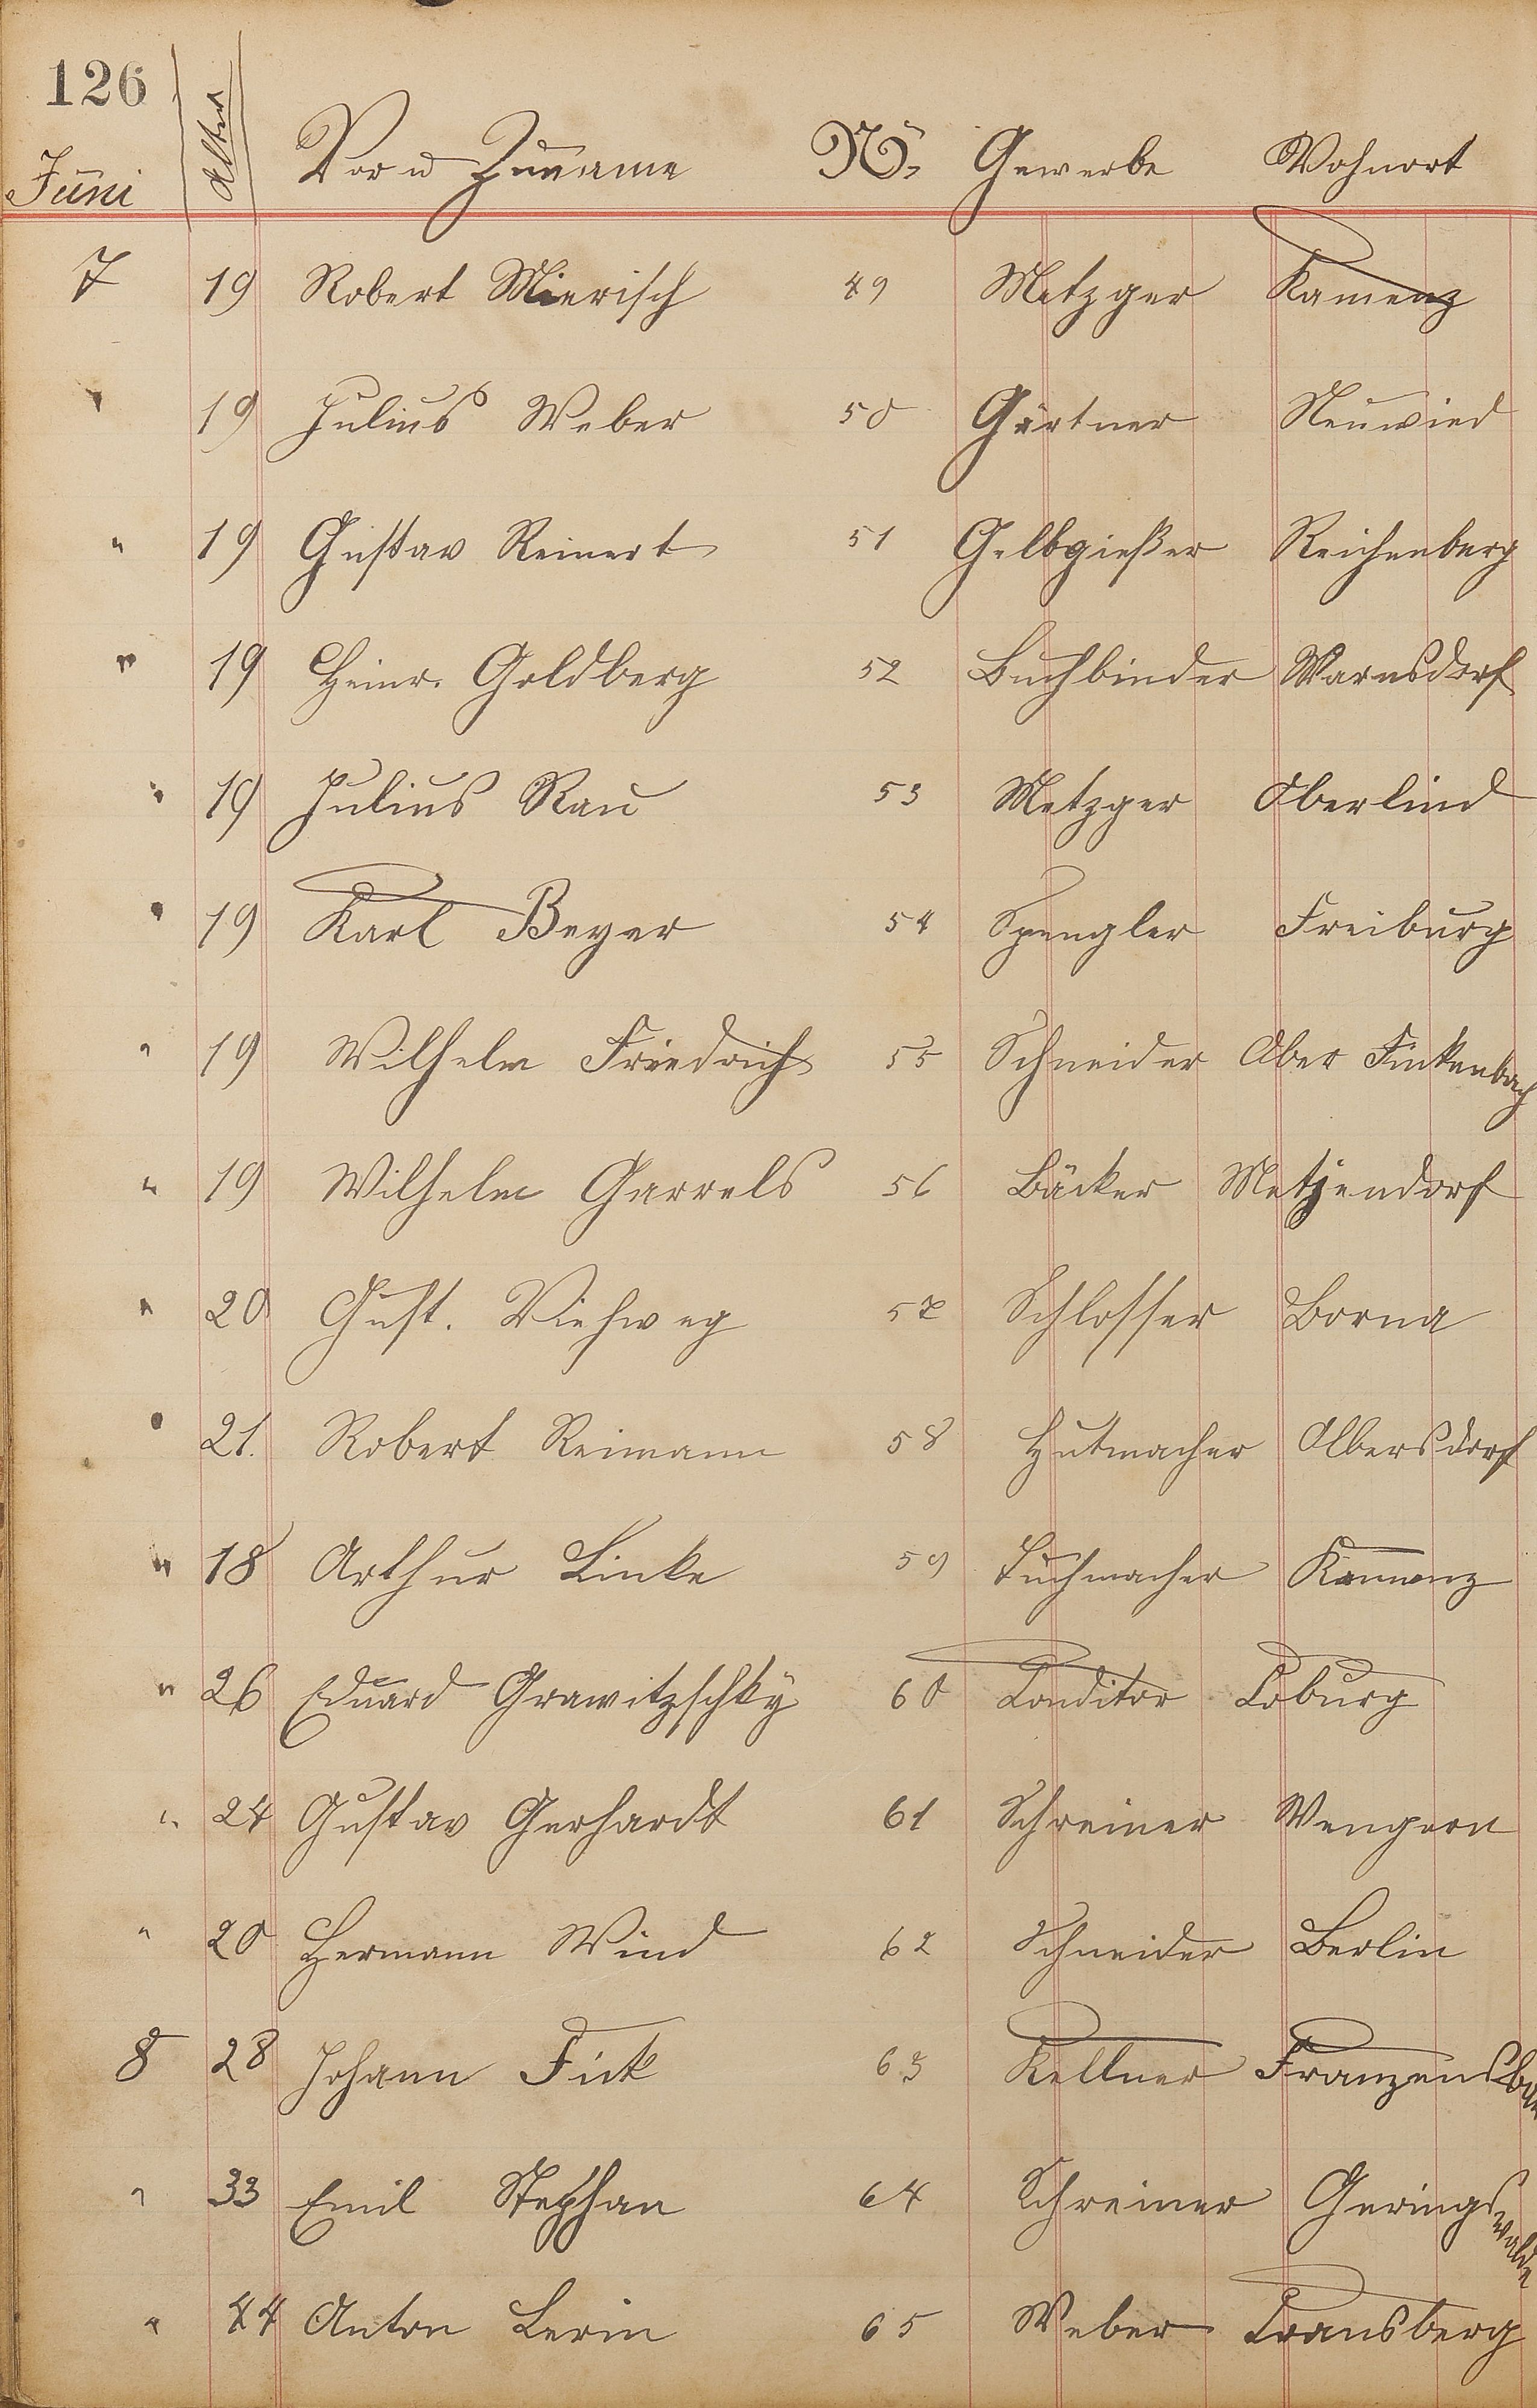 126
Juni Alter Vor u Zuname No. Gewerbe Wohnort
7 19 Robert Mierisch 49 Metzger Kamenz
" 19 Julius Weber 50 Gärtner Neuwied
" 19 Gustav Reinert 51 Gelbgießer Reichenberg
" 19 Heinr. Goldberg 52 Buchbinder Warnsdorf
" 19 Julius Rau 53 Metzger Oberlind
" 19 Karl Beyer 54 Spengler Freiburg
" 19 Wilhelm Friedrich 55 Schneider Ober Finkenbach
" 19 Wilhelm Garrels 56 Bäcker Metjendorf
" 20 Gust. Viehweg 57 Schlosser Borna
" 21. Robert Reimann 58 Hutmacher Olbersdorf
" 18 Arthur Linke 59 Tuchmacher Kammenz
" 26 Eduard Grawitzschky 60 Conditor Coburg
" 24 Gustav Gerhardt 61 Schreiner Wengern
" 20 Hermann Wind 62 Schneider Berlin
8 28 Johann Fick 63 Kellner
" 33 Emil Stephan 64 Schreiner Geringswalde
" 44 Anton Lerin 65 Weber Transberg